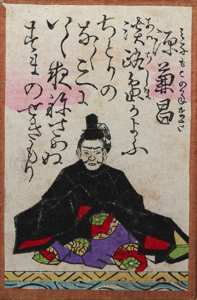 みなもとのかねまさ
源兼昌
あはぢしま
淡路島かよふ
ちとりの
なくこゑに
いく夜ねさめぬ
すまのせきもり